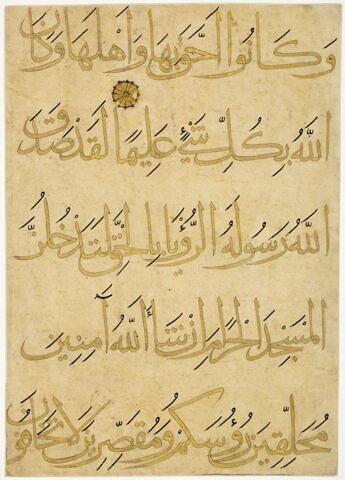 وَكَانُوا أَحَقَّ بِهَا وَأَهْلَهَا وَكَانَ
اللهُ بِكُلِّ شَيْءٍ عَلِيمًا لَقَدْ صَدَقَ
اللهُ رَسُولَهُ الرُّؤْيَا بِالْحَقِّ لَتَدْخُلُنَّ
الْمَسْجِدَ الْحَرَامَ إِنْ شَاءَ اللهُ آمِنِينَ
مُحَلِّقِينَ رُؤُسَكُمْ وَمُقَصِّرِينَ لَا تَخَافُونَ